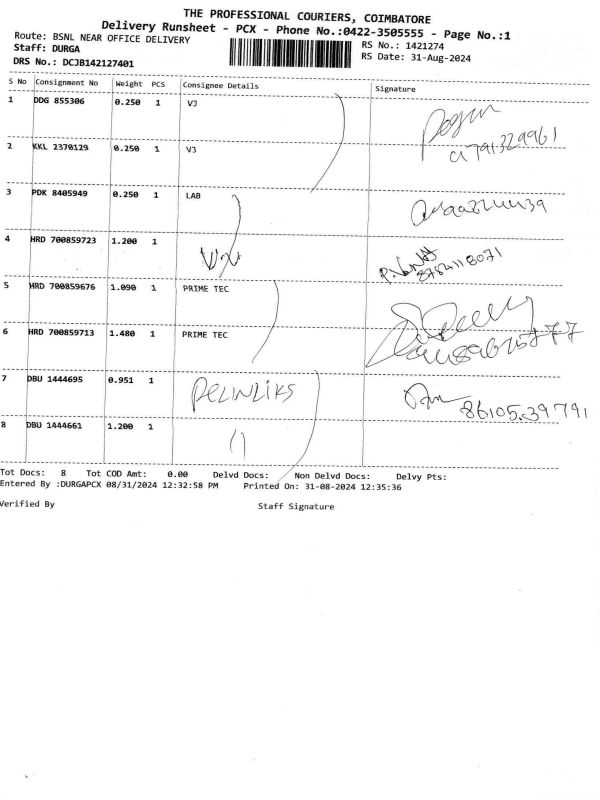 THE PROFESSIONAL COURIERS, COIMBATORE
Delivery Runsheet - PCX - Phone No.:0422-3505555 - Page No.:1
Route: BSNL NEAR OFFICE DELIVERY
RS No.: 1421274
Staff: DURGA
RS Date: 31-Aug-2024
DRS No.: DCJB142127401
S No Consignment No Weight PCS Consignee Details Signature
1 DDG 855306 0.250 1 VJ
2 KKL 2370129 0.250 1 VJ
3 PDK 8405949 0.250 1 LAB
4 HRD 700859723 1.200 1
5 HRD 700859676 1.090 1 PRIME TEC
6 HRD 700859713 1.480 1 PRIME TEC
7 DBU 1444695 0.951 1
86105.39791
8 DBU 1444661 1.200 1
Tot Docs: 8 Tot COD Amt: 0.00 Delvd Docs: Non Delvd Docs: Delvy Pts:
Entered By :DURGAPCX 08/31/2024 12:32:58 PM Printed On: 31-08-2024 12:35:36
Verified By Staff Signature